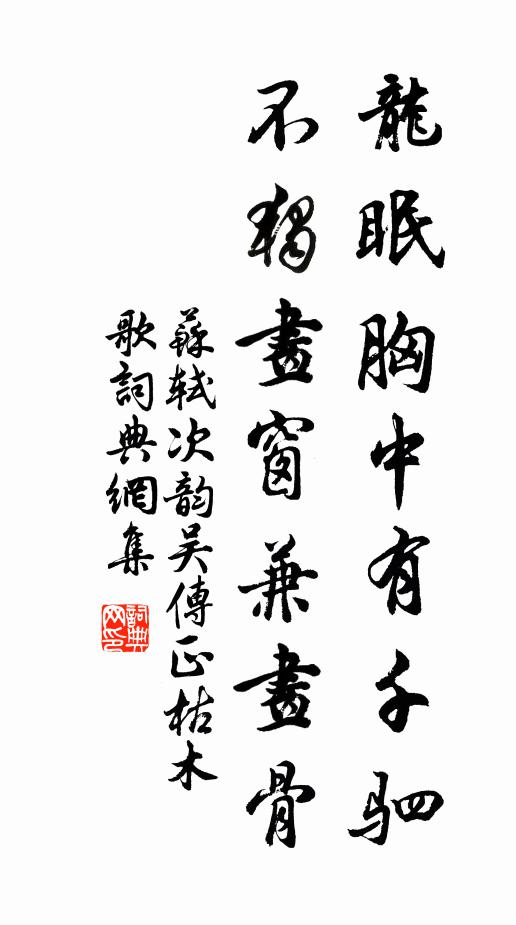 龍眠胸中有千驷
不獨畫窗兼畫骨
蘇轼次韵吴傳正枯木
歌詞典網集
詞典
网印